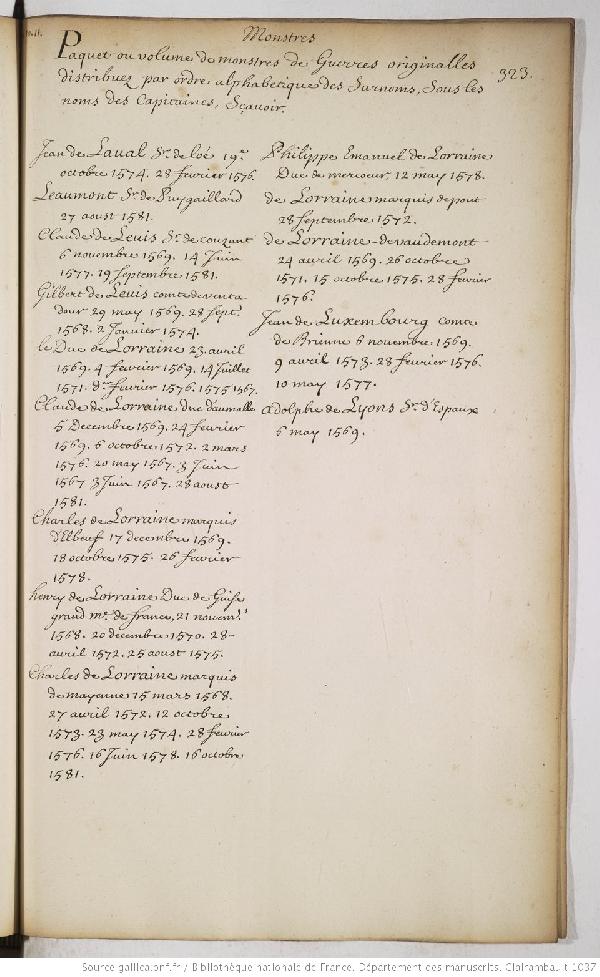 Monstres
323.
Paquet ou volume de monstres de Guerres originalles
distribuez par ordre alphabetique des Surnoms, Sous les
noms des Capitaines, Sçavoir.
Jean de Laual Sr. de loé 19e.
octobre 1574. 28 fevrier 1576.
Leaumont Sr. de Puygaillard
27 aoust 1581.
Claude de Leuis Sr. de couzant
6 novembre 1569. 14 Juin
1577. 19 Septembre 1581.
Gilbert de Leuis comte de venta
dour 29 may 1569. 28 Sept.
1568. 2 Janvier 1574.
le Duc de Lorraine 23. avril
1569. 4 fevrier 1569. 14 Juillet
1571. de. fevrier 1576. 1575 1567.
Claude de Lorraine duc d'aumalle
5 Decembre 1569. 24 fevrier
1569. 6 octobre 1572. 2 mars
1576. 20 may 1567. 3 Juin
1567 3 Juin 1567. 28 aoust
1581.
Charles de Lorraine marquis
d'Elbeuf 17 decembre 1569.
18 octobre 1575. 26 fevrier
1578.
henry de Lorraine Duc de Guise
grand me. de france, 21 novemb.
1568. 20 decembre 1570. 28
avril 1572. 25 aoust 1575.
Charles de Lorraine marquis
de mayenne 15 mars 1568.
27 avril 1572. 12 octobre
1573. 23 may 1574. 28 fevrier
1576. 16 Juin 1578. 16 octobre
1581.
Philippe Emanuel de Lorraine
Duc de mercoeur 12 may 1578.
de Lorraine marquis de pont
28 Septembre 1572.
de Lorraine-de vaudemont
24 avril 1569. 26 octobre
1571. 15 octobre 1575. 28 fevrier
1576.
Jean de Luxembourg comte
de Brienne 6 novembre 1569.
9 avril 1573. 28 fevrier 1576.
10 may 1577.
Adolphe de Lyons Sr. d'Espaux
6 may 1569.
Source gallica.bnf.fr / Bibliothèque nationale de France. Département des manuscrits. Clairambault 1037